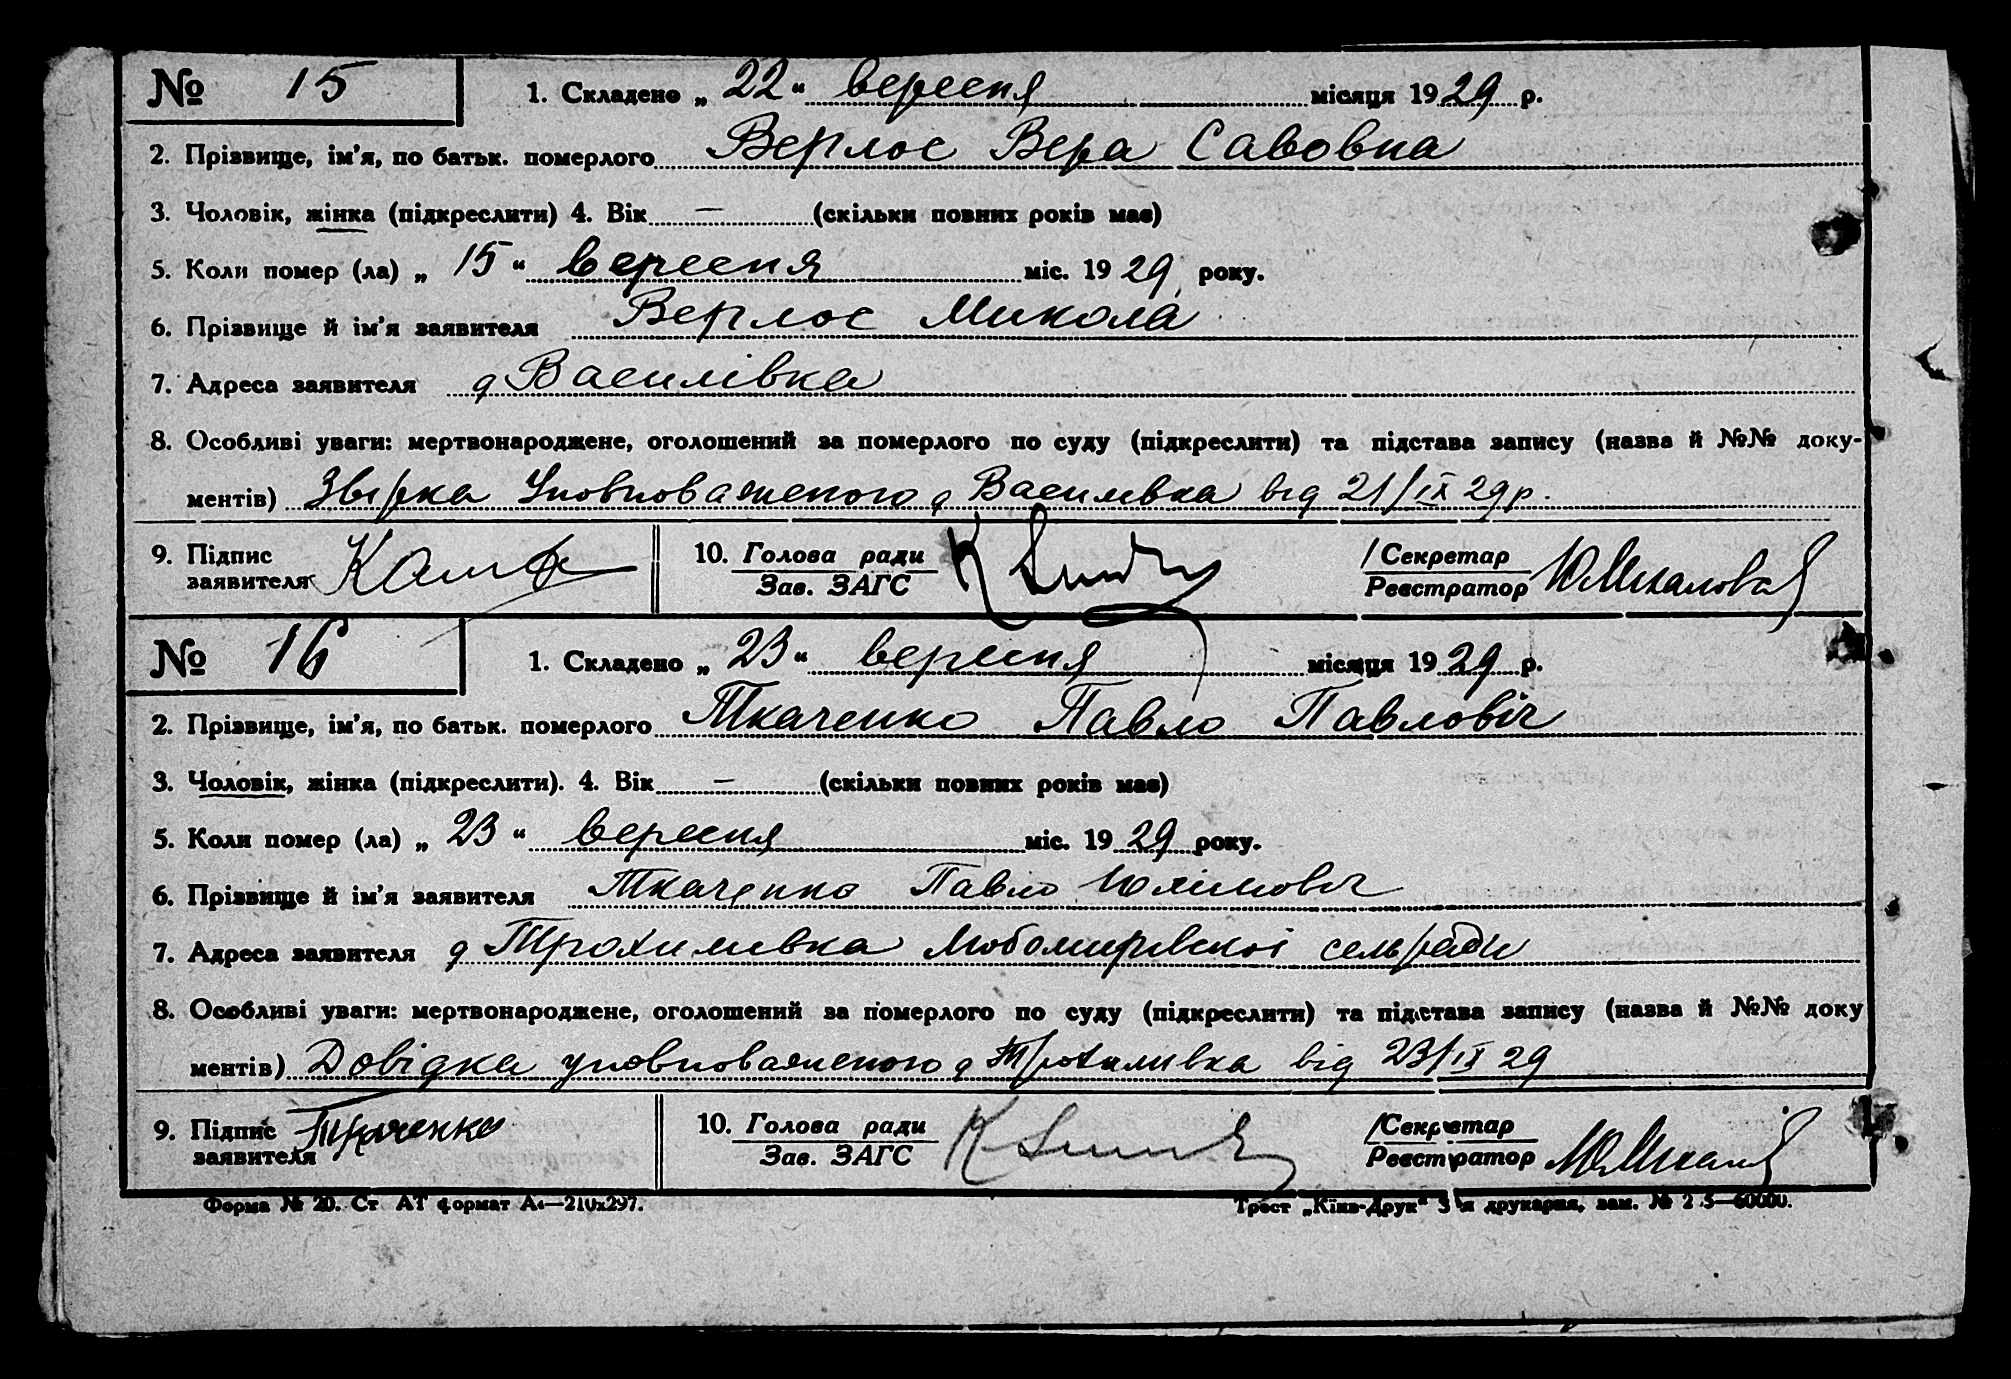 № 15 1. Складено „ 22 “ вересня місяця 1929 р.
2. Прізвище, ім’я, по батьк. померлого Верлос Вера Савовна
3. Чоловік, жінка (підкреслити) 4. Вік — (скільки повних років має)
5. Коли помер (ла) „ 15 “ вересня міс. 1929 року.
6. Прізвище й ім’я заявителя Верлос Микола
7. Адреса заявителя д Василівка
8. Особливі уваги: мертвонароджене, оголошений за померлого по суду (підкреслити) та підстава запису (назва й №№ доку-
ментів) Уповноваженого д Василевка від 21/IX 29 р.
9. Підпис 10. Голова ради Секретар
заявителя Зав. ЗАГС Реєстратор
№ 16 1. Складено „ 23 “ вересня місяця 1929 р.
2. Прізвище, ім’я, по батьк. померлого Ткаченко Павло Павловіч
3. Чоловік, жінка (підкреслити). 4. Вік — (скільки повних років має)
5. Коли помер (ла) „ 23 “ вересня міс. 1929 року.
6. Прізвище й ім’я заявителя Ткаченко Павло
7. Адреса заявителя д Трохимивка Любомирівскоі сельради
8. Особливі уваги: мертвонароджене, оголошений за померлого по суду (підкреслити) та підстава запису (назва й №№ доку
ментів) Довідка уповноваженого д Трохимивка від 23/IX 29
9. Підпис Ткаченко 10. Голова ради Секретар
заявителя Зав. ЗАГС Реєстратор
Форма № 20. Ст АТ формат А4—210х297. Трест „Київ-Друк“ друкарня, зам. №